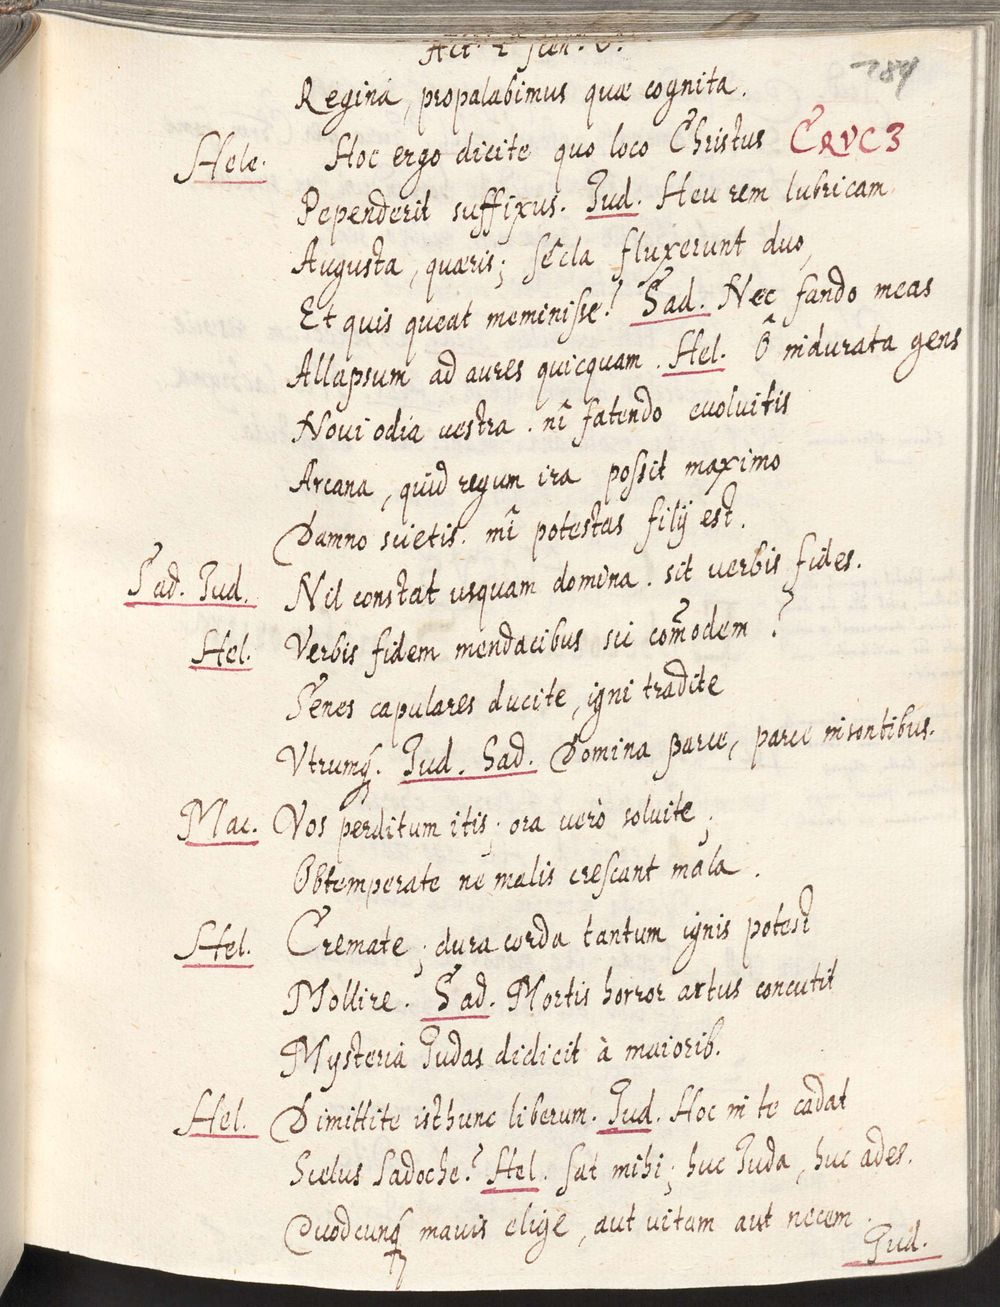 Act. 2 scen. 6.
784
Regina, propalabimus quæ cognita.
Hele. Hoc ergo dicite quo loco Christus CRVC3
Pependerit suffixus. Jud. Heu rem lubricam
Augusta, quæris; sęcla fluxerunt duo,
Et quis queat meminisse! Sad. Nec fando meas
Allapsum ad aures quicquam. Hel. Ô indurata gens
Noui odia vestra. nî fatendo evoluitis
Arcana, quid regum ira possit maximo
Damno scietis. mî potestas filij est.
Sad. Jud. Nil constat usquam domina. sit verbis fides.
Hel. Verbis fidem mendacibus sic com̃odem?
Senes capulares ducite, igni tradite
Vtrumq. Jud. Sad. Domina parce, parce insontibus.
Mac. Vos perditum itis; ora verò soluite;
Obtemperate ne malis crescant mala.
Hel. Cremate; dura corda tantum ignis potest
Mollire. Sad. Mortis horror artus concutit
Mysteria Judas didicit à maiorib.
Hel. Dimittite isthunc liberum. Jud. Hoc in te cadat
Scelus Sadoche? Hel. sat mihi; huc Juda, huc ades.
Quodcunq mavis elige, aut vitam aut necem.
Jud.